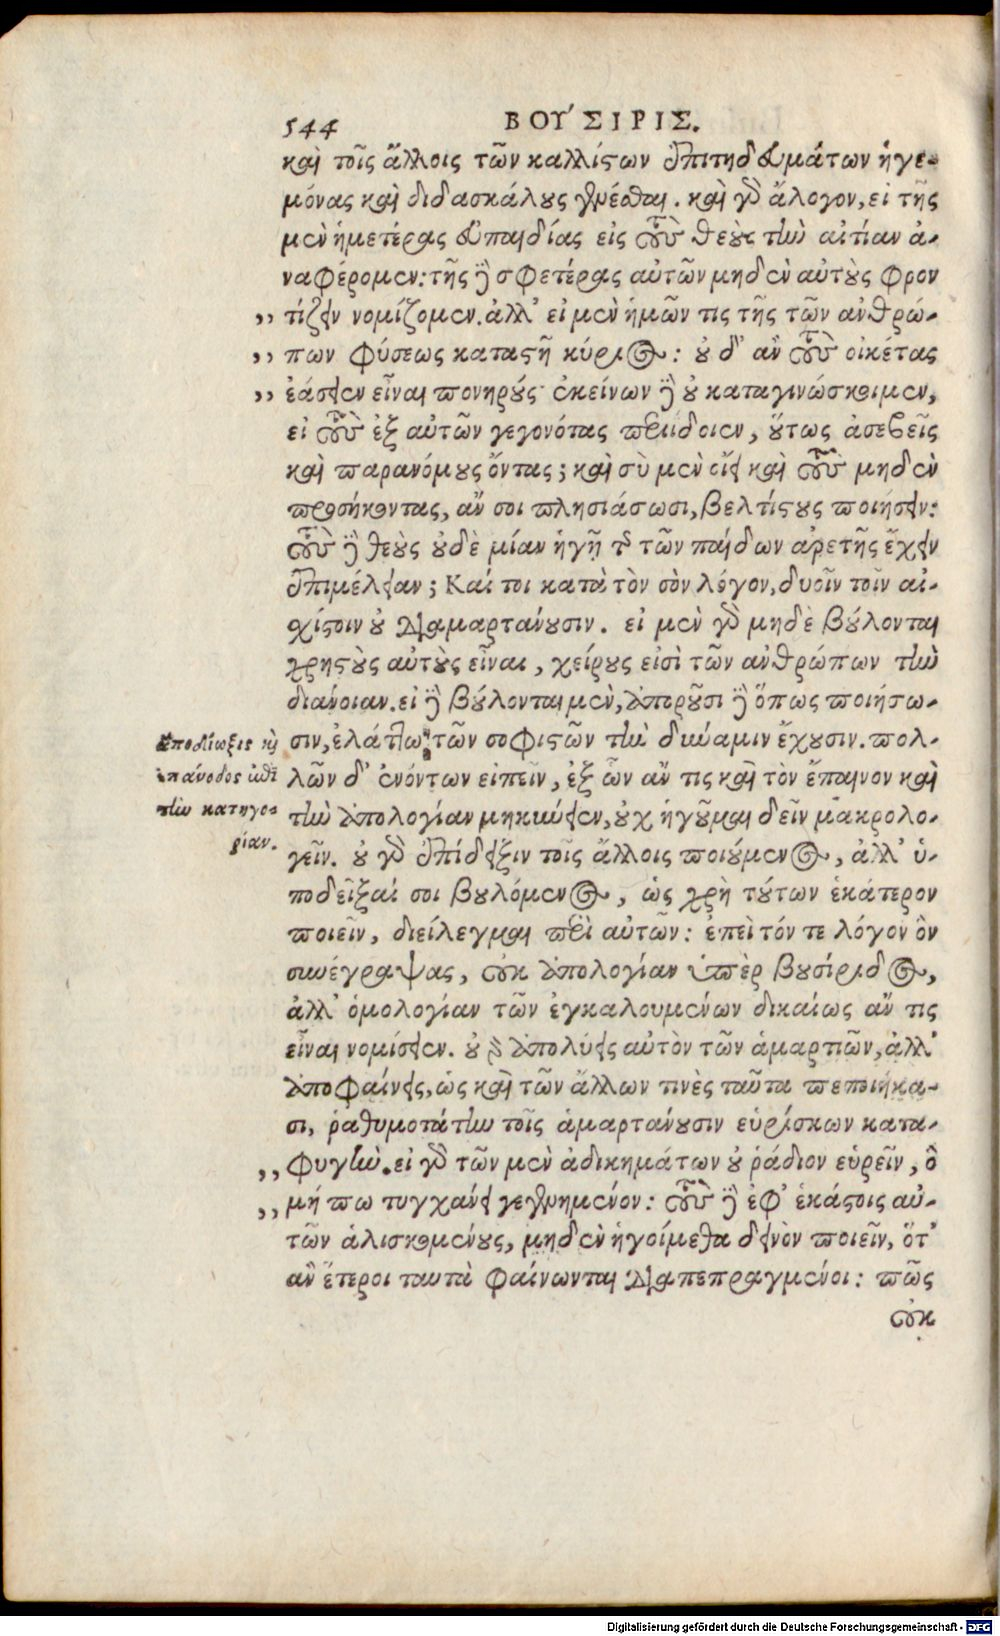 544 ΒΟΎΣΙΡΙΣ.
καὶ τοῖς ἄλλοις τῶν καλλίστων ἐπιτηδευμάτων ἡγε-
μόνας καὶ διδασκάλους γενέσθαι. καὶ γὸ ἄλογον, εἰ τῆς
μὲν ἡμετέρας εὐπαιδίας εἰς τοὺς θεοὺς τὴν αἰτίαν ἀ-
ναφέρομεν: τῆς δὲ σφετέρας αὐτῶν μηδὲν αὐτοὺς φρον
,, τίζειν νομίζομεν. ἀλλ' εἰ μὲν ἡμῶν τις τῆς τῶν ἀνθρώ-
,, πων φύσεως καταστῆ κύριος: οὐδ' ἂν τοὺς οἰκέτας
,, ἐάσειεν εἶναι πονηρούς· ἐκείνων δὲ οὐ καταγινώσκοιμεν,
εἰ τοὺς ἐξ αὐτῶν γεγονότας περιίδοιεν, οὕτως ἀσεβεῖς
καὶ παρανόμους ὄντας; καὶ σὺ μὲν οἴει καὶ τοὺς μηδὲν
προσήκοντας, ἄν σοι πλησιάσωσι, βελτίστους ποιήσειν:
τοὺς δὲ θεοὺς οὐδὲ μίαν ἡγῆ τ τῶν παίδων ἀρετῆς ἔχειν
ἐπιμέλειαν; Καί τοι κατὰ τὸν σὸν λόγον, δυοῖν τοῖν αἰ-
σχίστοιν οὐ διαμαρτάνουσιν. εἰ μὲν γὸ μηδὲ βούλονται
χρηστοὺς αὐτοὺς εἶναι, χείρους εἰσὶ τῶν ἀνθρώπων τὴν
διάνοιαν. εἰ δὲ βούλονται μὲν, ἀποροῦσι δὲ ὅπως ποιήσω-
σιν, ἐλάττω τῶν σοφιστῶν τὴν δύναμιν ἔχουσιν. πολ-
λῶν δ' ἐνόντων εἰπεῖν, ἐξ ὧν ἄν τις καὶ τὸν ἔπαινον καὶ
τὴν ἀπολογίαν μηκύνειεν, οὐχ ἡγοῦμαι δεῖν μακρολο-
γεῖν. οὐ γὸ ἐπίδειξιν τοῖς ἄλλοις ποιούμενος, ἀλλ' ὑ-
ποδεῖξαί σοι βουλόμενος, ὡς χρὴ τούτων ἑκάτερον
ποιεῖν, διείλεγμαι περὶ αὐτῶν: ἐπεὶ τόν τε λόγον ὃν
συνέγραψας, οὐκ ἀπολογίαν ὑπὲρ βουσίριδος,
ἀλλ' ὁμολογίαν τῶν ἐγκαλουμένων δικαίως ἄν τις
εἶναι νομίσειεν. οὐ γὸ ἀπολύεις αὐτὸν τῶν ἁμαρτιῶν, ἀλλ'
ἀποφαίνεις, ὡς καὶ τῶν ἄλλων τινὲς ταῦτα πεποιήκα-
σι, ῥαθυμοτάτην τοῖς ἁμαρτάνουσιν εὑρίσκων κατα-
,, φυγὴν. εἰ γὸ τῶν μὲν ἀδικημάτων οὐ ῥάδιον εὑρεῖν, ὃ
,, μή πω τυγχάνει γεγενημένον: τοὺς δὲ ἐφ' ἑκάστοις αὐ-
τῶν ἁλισκομένους, μηδὲν ἡγοίμεθα δεινὸν ποιεῖν, ὅτ'
ἂν ἕτεροι ταυτὰ φαίνωνται διαπεπραγμένοι: πῶς
οὐκ
ἀποδίωξις καὶ
ἐπάνοδος ἐπὶ
τὴν κατηγο-
ρίαν.
Digitalisierung gefördert durch die Deutsche Forschungsgemeinschaft - DFG